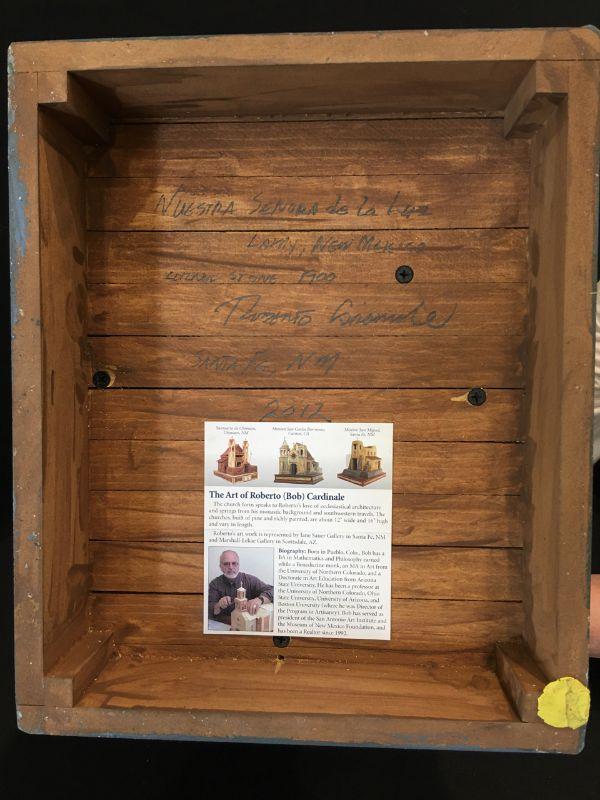 Nuestra Señora de la Luz
Lamy, New Mexico
Stone 1900
Roberto Cardinale
Santa Fe, NM
2012
Santuario de Chimayo,
Chimayo, NM
Mission San Carlos Borromeo,
Carmel, CA
Mission San Miguel,
Santa Fe, NM
The Art of Roberto (Bob) Cardinale
The church form speaks to Roberto's love of ecclesiastical architecture
and springs from his monastic background and southwestern travels. The
churches, built of pine and richly painted, are about 12" wide and 16" high
and vary in length.
Roberto's art work is represented by Jane Sauer Gallery in Santa Fe, NM
and Marshall-Lekae Gallery in Scottsdale, AZ.
Biography: Born in Pueblo, Colo., Bob has a
BA in Mathematics and Philosophy earned
while a Benedictine monk, an MA in Art from
the University of Northern Colorado, and a
Doctorate in Art Education from Arizona
State University. He has been a professor at
the University of Northern Colorado, Ohio
State University, University of Arizona, and
Boston University (where he was Director of
the Program in Artisanry). Bob has served as
president of the San Antonio Art Institute and
the Museum of New Mexico Foundation, and
has been a Realtor since 1992.